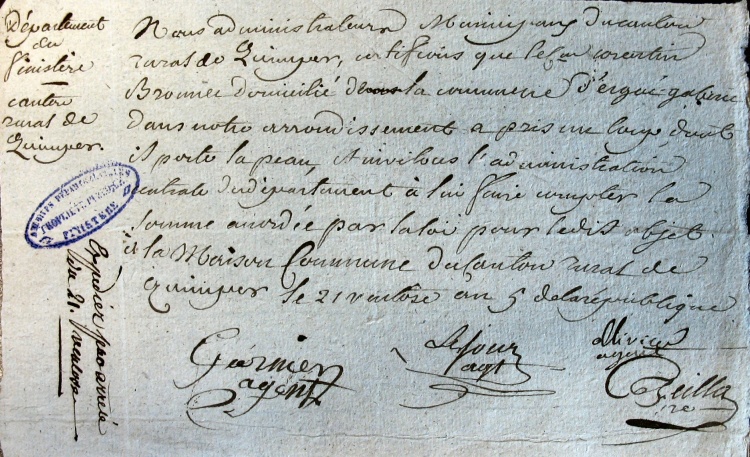 Département
du
finistère
canton
rural de
Quimper.
Nous administrateurs Municipaux du canton
rural de Quimper, certifions que le Cen corentin
domicilié de la commune d'ergué-gaberic
dans notre arrondissement a pris un loup, dont
il porte la peau, Invitons l'administration
centrale du département à lui faire compter la
somme accordée par la loi pour ledit objet.
à la Maison Commune du Canton rural de
Quimper le 21 ventôse an 5 de la république
ARCHIVES DÉPARTEMENTALES
PROPRIÉTÉ PUBLIQUE
FINISTÈRE
Expédié par arrêté
du 21. Ventôse
agent
Le Jour
agt
agent